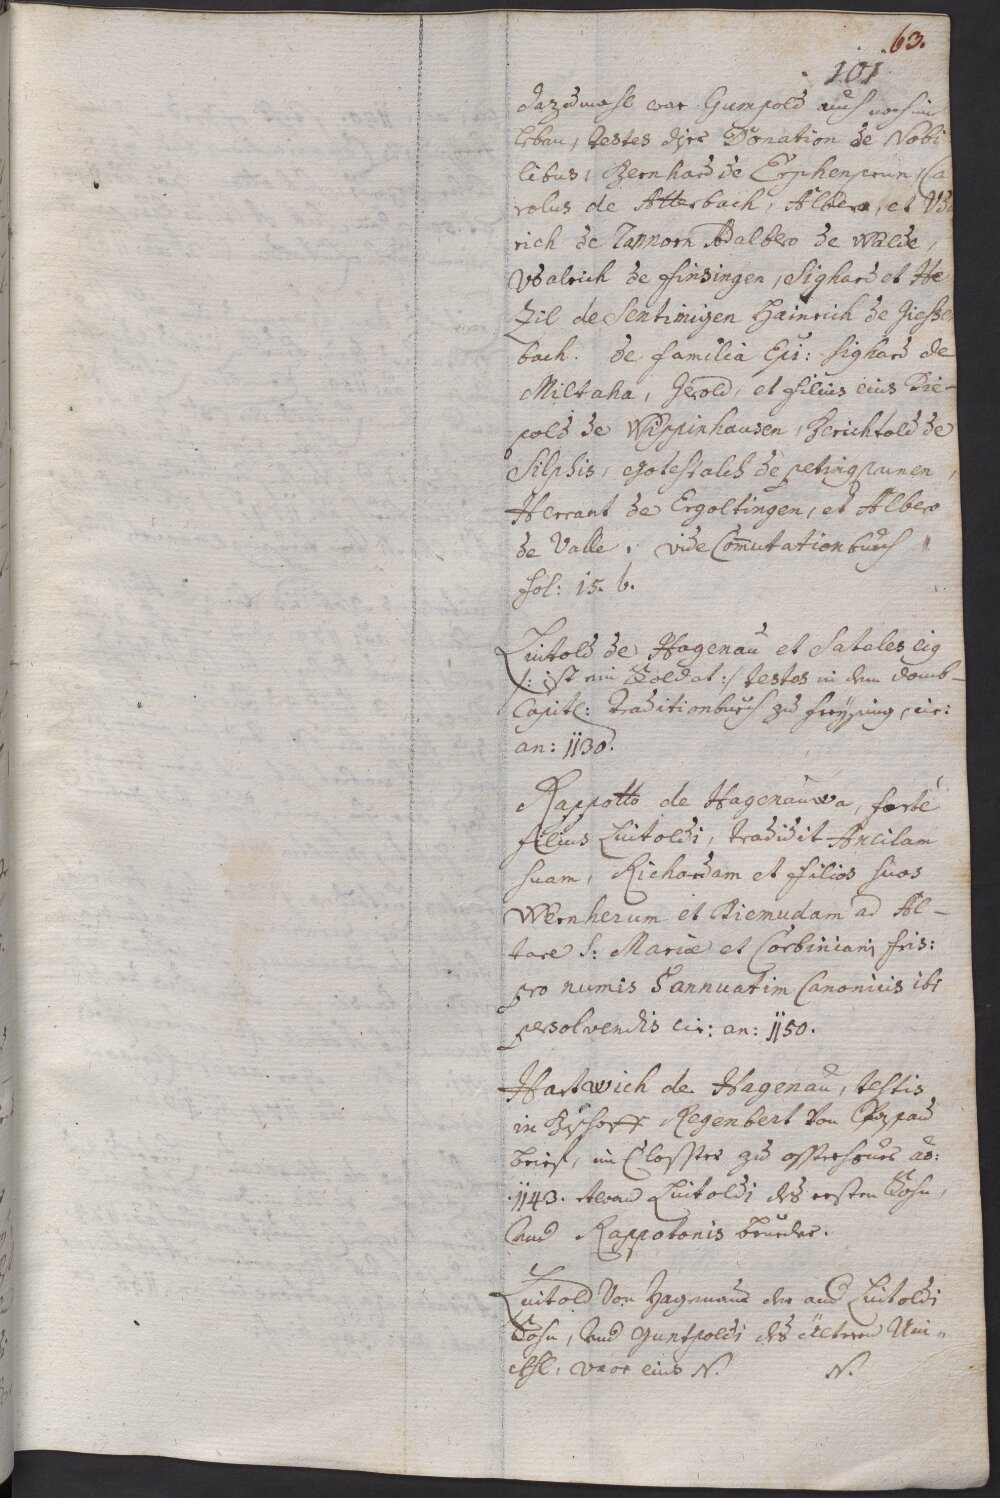 63.
101
dazumahl war Gumpold auch noch im
leben, testes diser Donation de Nobi
libus, Bernhard de Erphenprun, Ca
rolus de Atterbach, Albero, et Ud
rich de Tannorn Adalbero de Walde,
Udalrich de Finsingen, Sighard et He
zil de Sentinigen Hainrich de Giessen
bach. de familia Epi: Sighard de
Miltaha, Gerold, et filius eius Die-
pold de Wippinhausen, Berichtold de
Silphis, Gotescalch de petingprunen,
Herrant de Ergoltingen, et Albero
de Valle. vide Com̄utationbuech
fol: 15. b.
Luitold de Hagenau et Sateles eig
/: ist ein Soldat :/ testes in dem domb-
Capitl: traditionbuech zu Freysing, cir:
an: 1130.
Rappotto de Hagenauwa, forte
filius Luitoldi, tradidit Ancilam
suam, Richardam et filios suos
Wernherum et Diemudam ad Al-
tare S: Mariæ et Corbiniani fris:
pro numis 5 annuatim Canonicis ibi
persolvendis cir: an: 1150.
Hartwich de Hagenau, testis
in Bischoff Regenbert von Passau
brief, im Closter zu Osterhoven ao:
1143. Luitoldi des ersten Sohn,
und Rappotonis brueder.
Luitold von Hagenau der and Luitoldi
Sohn, und Guntpoldi des Eltern Uni-
ckhl, uxor eius N. N.